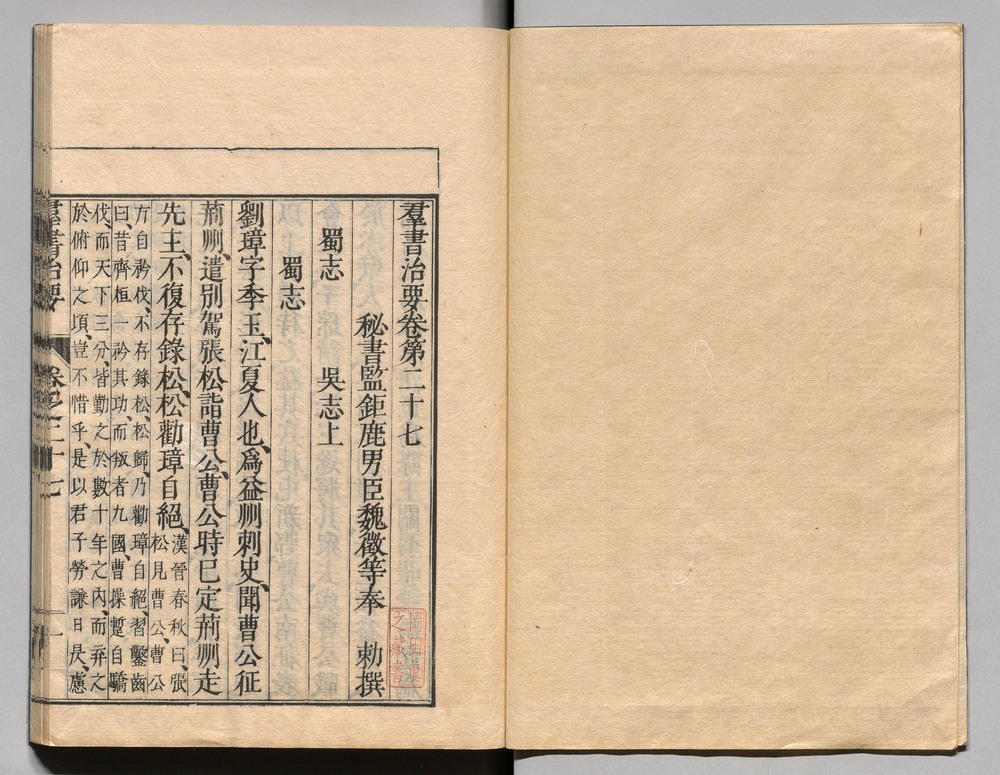 羣書治要卷第二十七
秘書監鉅鹿男臣魏徵等奉　勅撰
蜀志　　吳志上
蜀志
劉璋字季玉、江夏人也、爲益州刺史、聞曹公征
荊州、遣別駕張松詣曹公、曹公時已定荊州走
先主、不復存錄松、松勸璋自絕、
漢晉春秋曰、張
松見曹公、曹公
方自矜伐、不存錄松、松歸、乃勸璋自絕、習鑿齒
曰、昔齊桓一矜其功、而叛者九國、曹操蹔自驕
伐、而天下三分、皆勤之於數十年之內、而弃之
於俯仰之頃、豈不惜乎、是以君子勞謙日昃、慮
羣書治要　卷之二十七　一
之藏書